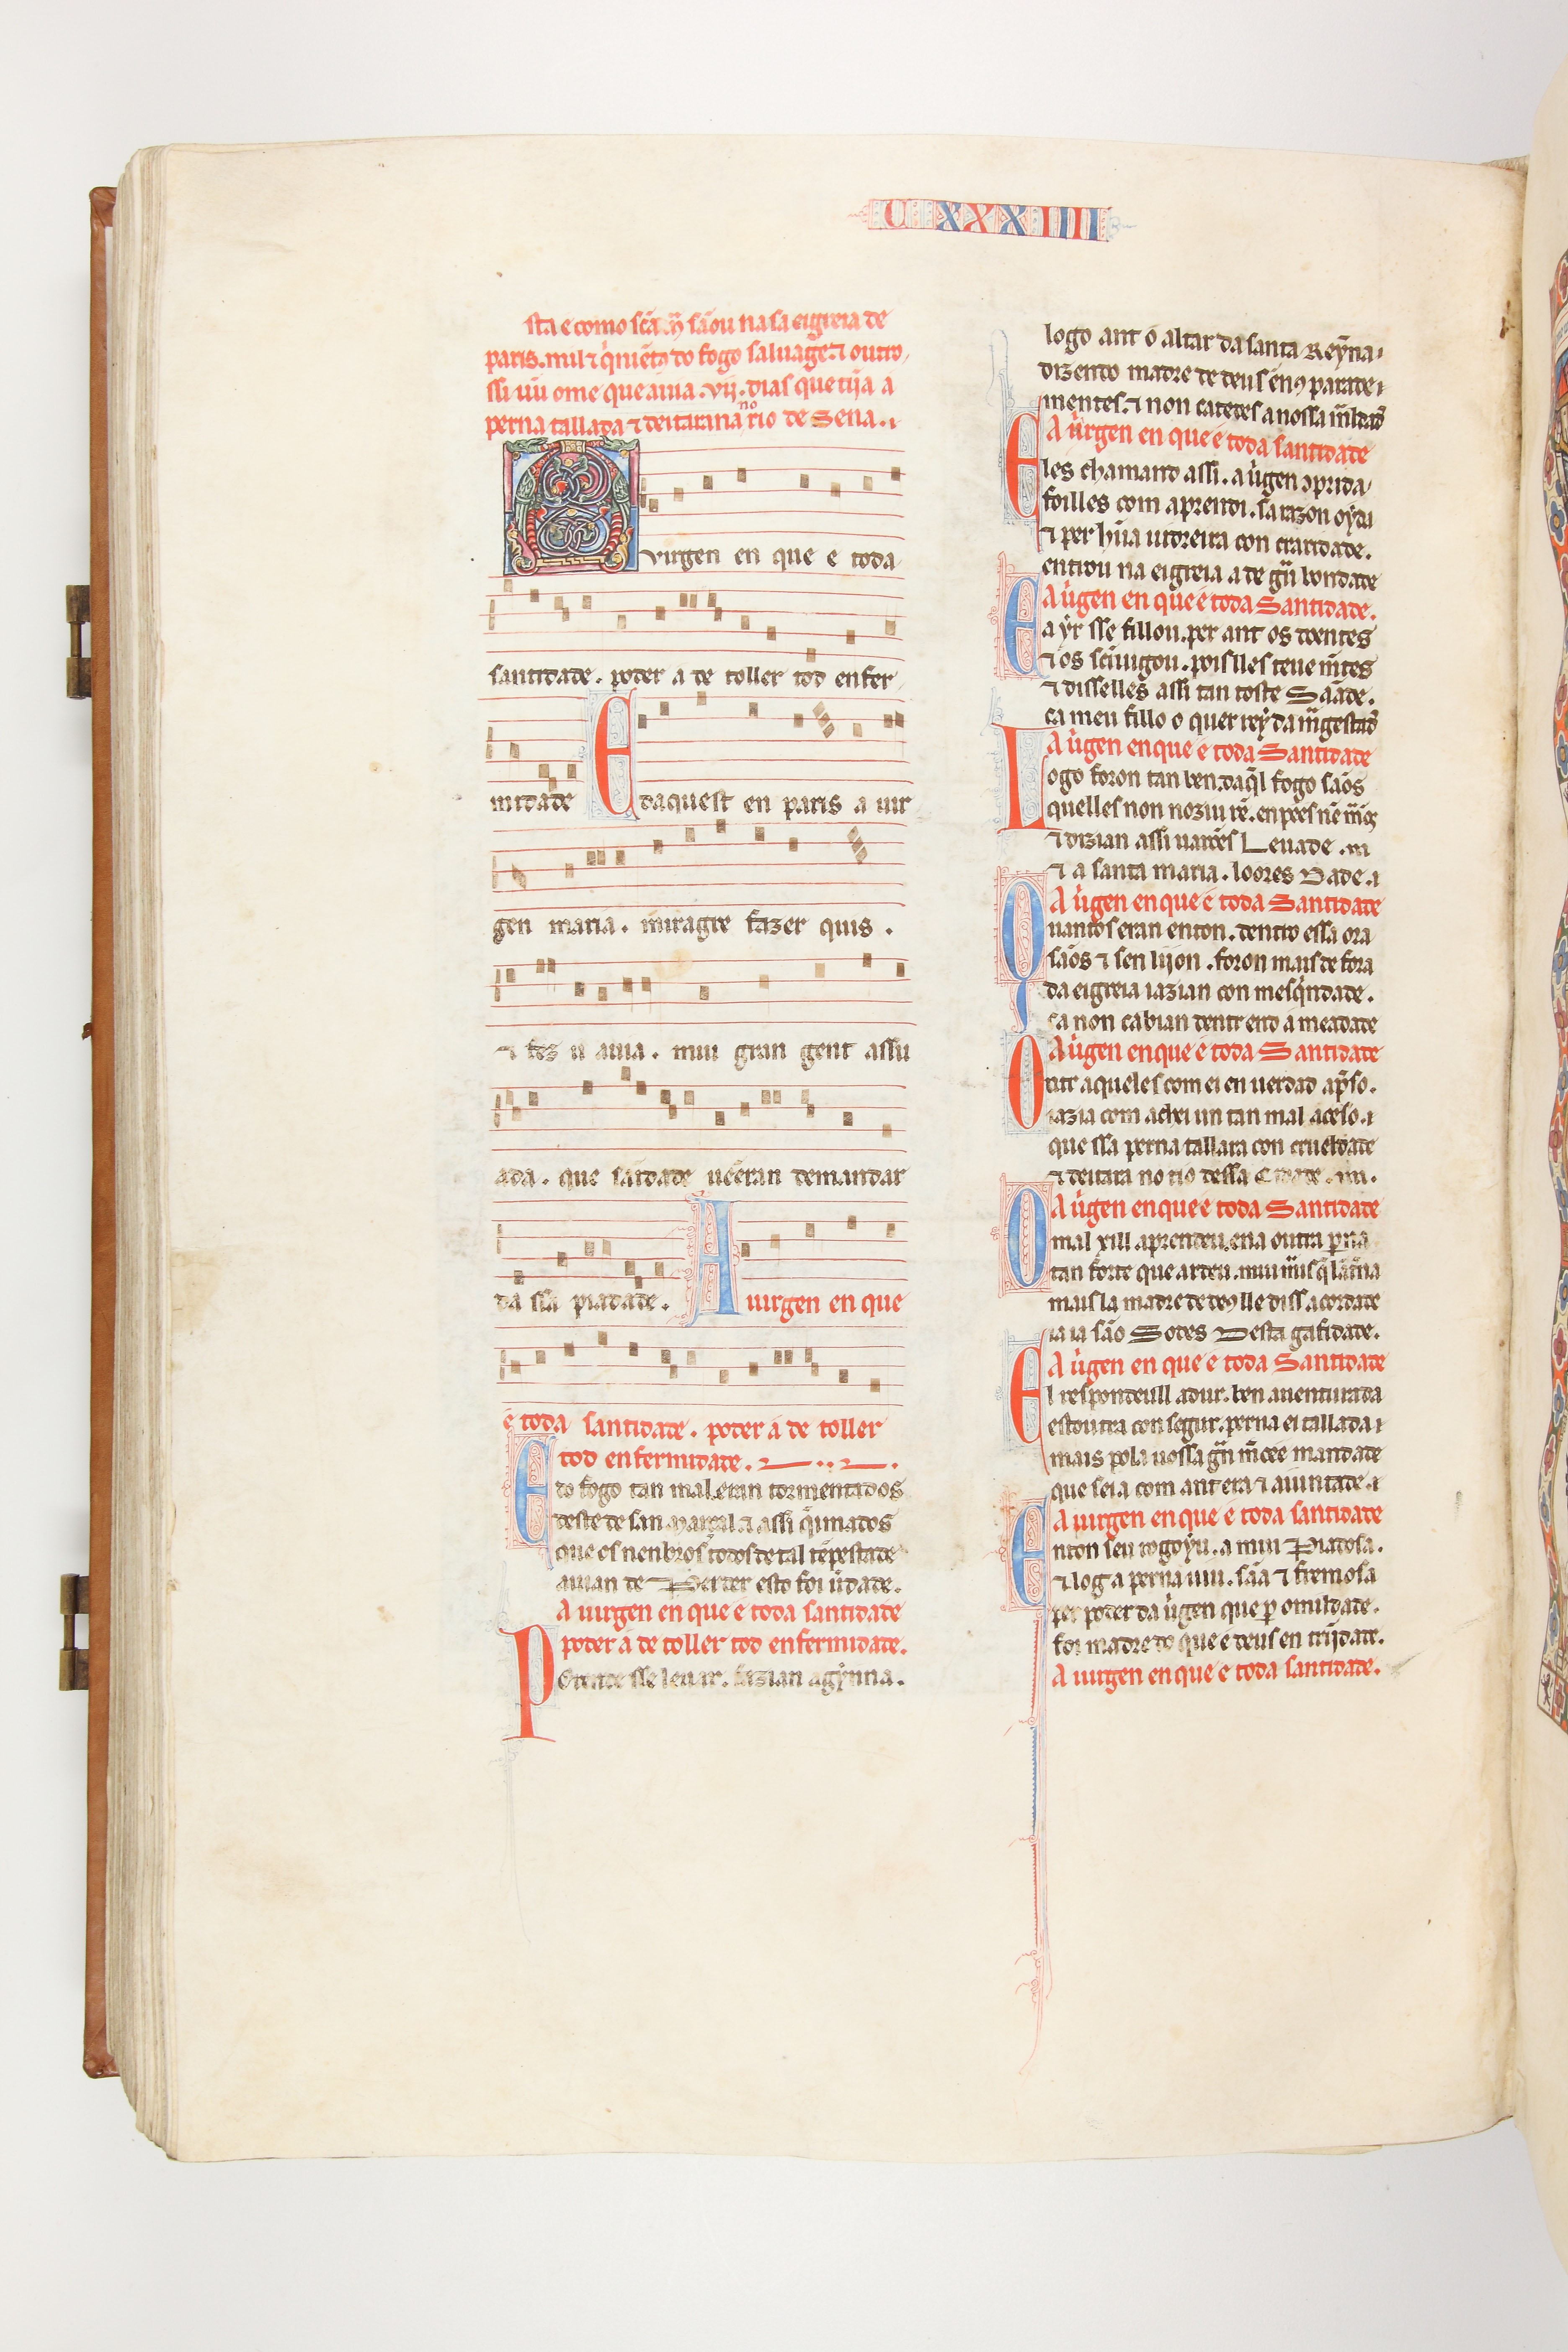 C XXXIIII
sta e como scã m̃ sãou na sa eigreia de
paris. mil ⁊ q̇niẽtos do fogo saluage. ⁊ outro
ssi uũ ome que auia . vij . dias que tija a
perna tallada ⁊ deitarana no rio de Sena.
A virgen en que e toda
santidade . poder a de toller tod enfer
midade E daquest en paris a uir
gen maria . miragre fazer quis .
⁊ fez y auia . mui gran gent assũ
ada . que saidade ueeran demandar
da sa piadade . A uirgen en que
e toda santidade . poder á de toller
tod enfermidade .
E do fogo tan mal eran tormentados
deste de san marçal ⁊ assi q̇imados
que os nenbros todos de tal tẽpestade
auian de Perder esto foi ũdade .
A uirgen en que e toda santidade
poder á de toller tod enfermidade .
Porende sse leuar . fazian agỹnna .
logo ant o altar da santa Reyña
dizendo madre de deus en nos parade
mentes . ⁊ non catedes a nossa m̃ldad
A uirgen en que e toda santidade
Eles chamand assi . a uirgen cõprida
foilles com aprendi . sa razon oyda
⁊ per hũa uidreira con craridade .
entrou na eigreia a de gñ bondade
A uirgen en que e toda Santidade .
E a yr sse fillou . per ant os doentes
⁊ os scĩuigou . pois lles teue m̃tes
⁊ disselles assi tan toste Saade .
ca meu fillo o quer rey da m̃gestad
A uirgen en que e toda Santidade
Logo foron tan ben . daq̃l fogo sãos
quelles non noziu rẽ . en pees nẽ m̃os
⁊ dizian assi uarões Leuade .
⁊ a santa maria . loores Dade .
A uirgen en que e toda Santidade
Quantos eran enton . dentro essa ora
sãos ⁊ sen lijon . foron mais de fora
da eigreia iazian con mesq̇indade .
ca non cabian dentr end a meadade
A uirgen en que e toda Santidade
Ontr aqueles com ei en uerdad ap̃so .
iazia com achei un tan mal aceso .
que ssa perna tallara con crueldade
⁊ deitara no rio dessa Cidade .
A uirgen en que e toda Santidade
O mal xill aprendeu . ena outra p̃na
tan forte que ardeu . mui m̃is q̃ lãt̃na
mais la madre de deus lle diss acordade
ia ia são Sodes Desta gafidade .
A uirgen en que e toda Santidade
El respondeull adur . ben auenturada
estoutra con segur . perna ei tallada
mais pola uossa gñ m̃cee mandade
que seia com ant era ⁊ aiuntade .
A uirgen en que e toda santidade
Enton seu rogo yu . a mui Piadosa .
⁊ log a perna uiu . sãa ⁊ fremosa
per poder da uirgen que p omildade .
foi madre do que é deus en trijdade .
A uirgen en que e toda santidade .